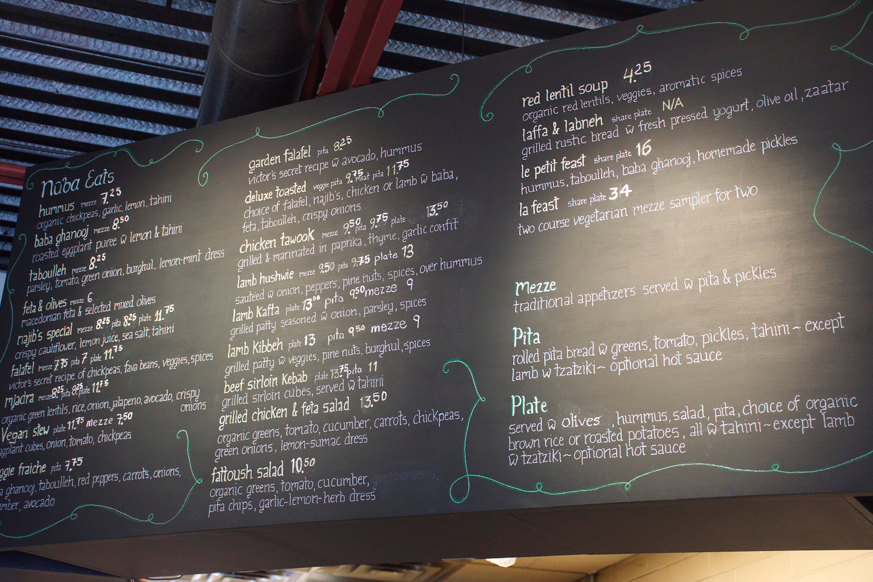 Nuba Eats
hummus mezze 7.25
organic chickpeas, garlic, lemon, tahini
baba ghanooj mezze 8.50
roasted eggplant puree w lemon & tahini
taboulleh mezze 8.25
parsley, tomato, green onion, burghul, lemon-mint dress
feta & olives mezze 6
macedonian feta & selected mixed olives
najib's special mezze 8.25 pita 8.25 plate 11.75
crispy cauliflower, lemon juice, sea salt, tahini
falafel mezze 7.75 pita 7 plate 11.75
victor's secret recipe of chickpeas, fava beans, veggies, spices
mjadra mezze 8.25 pita 8.25 plate 11.75
organic green lentils, rice, onion, jalapeno, avocado, crispy
onions
Vegan stew plate 11.75 mezze 7.50
eggplant cubes, onion, tomato, chickpeas
ggie fraiche pita 7.75
a ghanooj, taboulleh, red peppers, carrots, onions,
mber, avocado
garden falafel pita 8.25
victor's secret recipe w avocado, hummus
deluxe toasted veggie pita 9.75 meat pita 11.75
choice of falafel, najib's, chicken or lamb w baba,
feta, taboulleh, crispy onions
chicken tawook mezze 9.50 pita 9.75 plate 13.50
grilled & marinated in paprika, thyme, garlic confit
lamb hushwie mezze 9.50 pita 9.75 plate 13
sauteed w onion, peppers, pine nuts, spices, over hummus
lamb Kafta plate 13 pita 9.50 mezze 9
grilled patty seasoned w onion, parsley, spices
lamb Kibbeh plate 13 pita 9.50 mezze 9
grilled patty w veggies, pine nuts, burghul, spices
beef sirloin Kebab plate 13.75 pita 11
grilled sirloin cubes, served w tahini
grilled chicken & feta salad 13.50
organic greens, tomato, cucumber, carrots, chickpeas,
green onions, lemon-sumac dress
fattoush salad 10.50
organic greens, tomato, cucumber,
pita chips, garlic-lemon-herb dress
red lentil soup 4.25
organic red lentils, veggies, aromatic spices
laffa & labneh share plate N/A
grilled rustic bread w fresh pressed yogurt, olive oil, zaatar
le petit feast share plate 16
hummus, taboulleh, baba ghanooj, homemade pickles
la feast share plate 34
two course vegetarian mezze sampler for two
Mezze
traditional appetizers served w pita & pickles
Pita
rolled pita bread w greens, tomato, pickles, tahini~ except
lamb w tzatziki~ optional hot sauce
Plate
served w olives, hummus, salad, pita, choice of organic
brown rice or roasted potatoes, all w tahini~except lamb
w tzatziki~ optional hot sauce